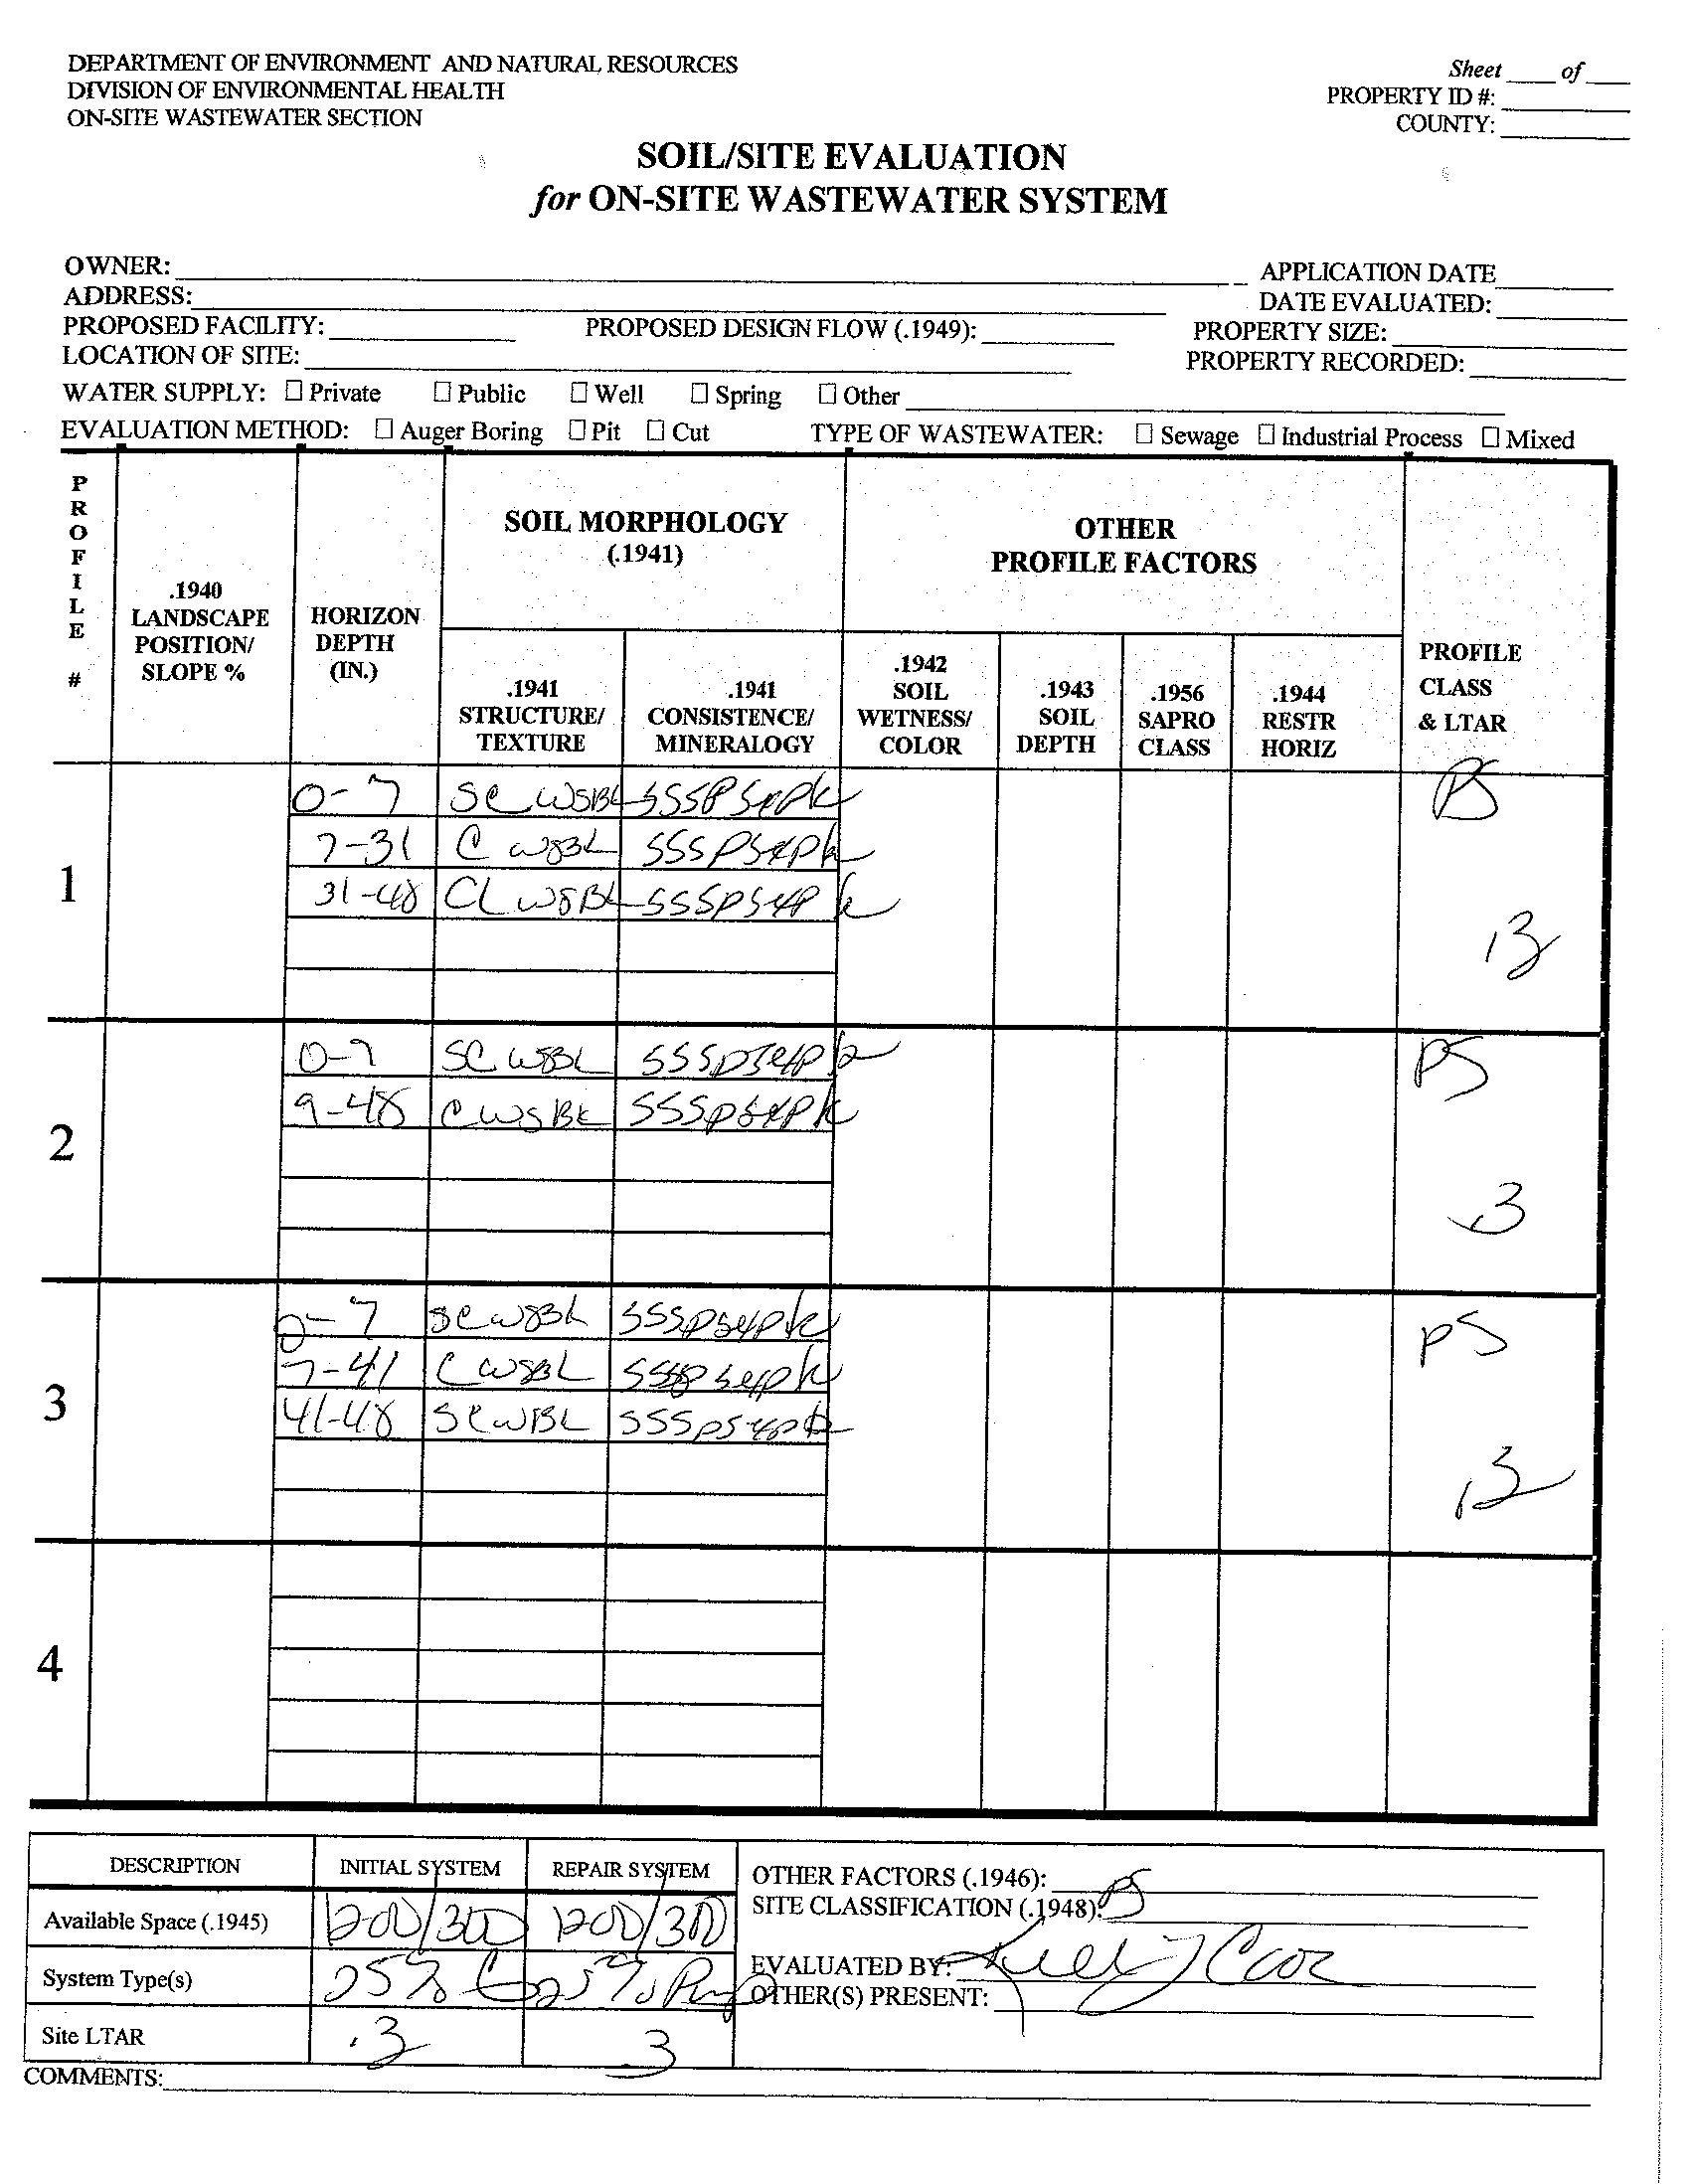 DEPARTMENT OF ENVIRONMENT AND NATURAL RESOURCES
DIVISION OF ENVIRONMENTAL HEALTH
ON-SITE WASTEWATER SECTION
Sheet ____ of ____
PROPERTY ID #:
COUNTY:
SOIL/SITE EVALUATION
for ON-SITE WASTEWATER SYSTEM
OWNER:
APPLICATION DATE
ADDRESS:
DATE EVALUATED:
PROPOSED FACILITY: PROPOSED DESIGN FLOW (.1949): PROPERTY SIZE:
LOCATION OF SITE: PROPERTY RECORDED:
WATER SUPPLY: ☐ Private ☐ Public ☐ Well ☐ Spring ☐ Other
EVALUATION METHOD: ☐ Auger Boring ☐ Pit ☐ Cut TYPE OF WASTEWATER: ☐ Sewage ☐ Industrial Process ☐ Mixed
PROFILE #
.1940 LANDSCAPE POSITION/ SLOPE %
HORIZON DEPTH (IN.)
SOIL MORPHOLOGY
(.1941)
OTHER
PROFILE FACTORS
.1941 STRUCTURE/ TEXTURE
.1941 CONSISTENCE/ MINERALOGY
.1942 SOIL WETNESS/ COLOR
.1943 SOIL DEPTH
.1956 SAPRO CLASS
.1944 RESTR HORIZ
PROFILE CLASS & LTAR
1
0-7 SC WSBK SSSPSEXPK PS
7-31 C WSBK SSSPSEXPK
31-48 CL WSBK SSSPSEXPK
.3
2
0-9 SC WSBK SSSPSEXPK PS
9-48 C WSBK SSSPSEXPK
.3
3
0-7 SC WSBK SSSPSEXPK PS
7-41 C WSBK SSSPSEXPK
41-48 SC WBK SSSPSEXPK
.3
4
DESCRIPTION INITIAL SYSTEM REPAIR SYSTEM
Available Space (.1945) 1200/300 1200/300
System Type(s) 25% 25% Pump
Site LTAR .3 .3
OTHER FACTORS (.1946):
SITE CLASSIFICATION (.1948): PS
EVALUATED BY:
OTHER(S) PRESENT:
COMMENTS: